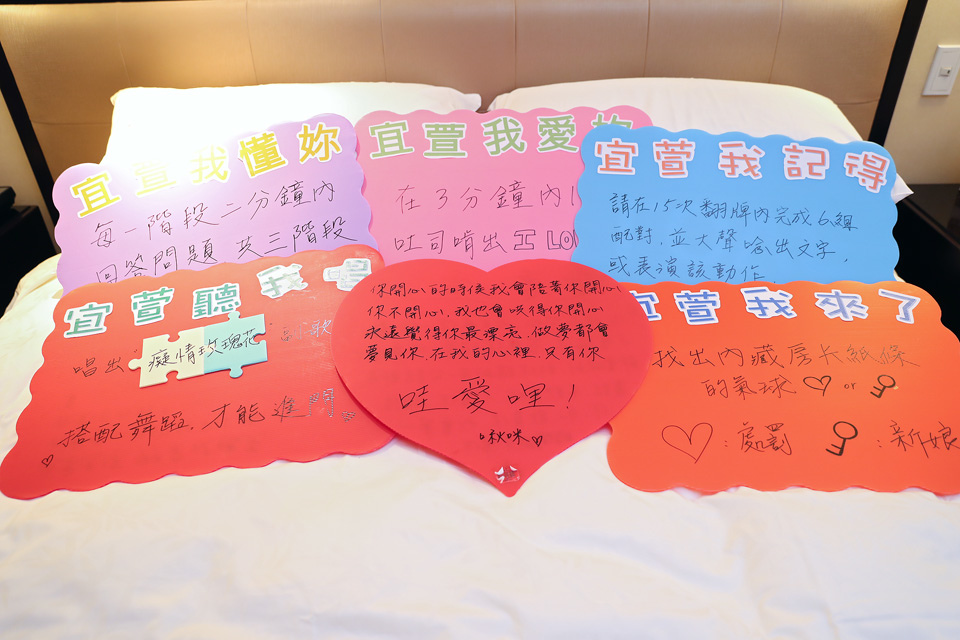 宜萱我懂妳
每一階段二分鐘內
回答問題 共三階段
宜萱我愛妳
在3分鐘內
吐司啃出 I LO
宜萱我記得
請在15次翻牌內完成6組
配對,並大聲唸出文字,
或表演該動作
宜萱聽我唱
唱出"癡情玫瑰花"
搭配舞蹈,才能進門。
你開心的時候我會陪著你開心
你不開心,我也會哄得你開心
永遠覺得你最漂亮,做愛都會
愛見你,在我的心裡,只有你
哇愛哩!
啾咪♡
宜萱我來了
找出內藏房卡紙條
的氣球♡or
♡:處罰 :新娘